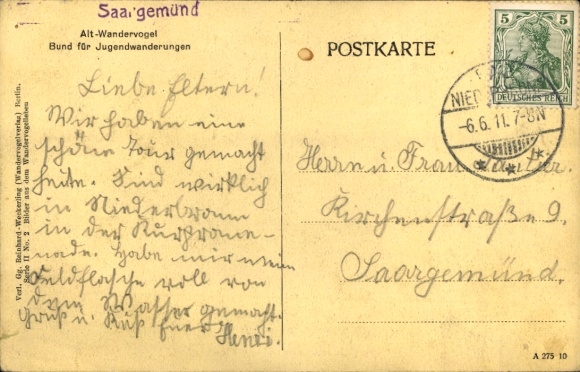 Saargemünd
Alt-Wandervogel
Bund für Jugendwanderungen
POSTKARTE
5 5
DEUTSCHES REICH
-6.6.11. 7-8N
Liebe Eltern!
Wir haben eine
schöne Tour gemacht
heute. Sind wirklich
in Niederbronn
in der Kurprome-
nade. Habe mir meine
Feldflasche voll von
dem Wasser gemacht.
Gruß u. Kuß Euer
Henri.
Herrn u. Frau
Kirchenstraße 9.
Saargemünd.
Verl. Gg. Reinhard-Weckerling (Wandervogelverlag) Berlin.
Serie II No. 2 Bilder aus dem Wandervogelleben
A 275 10